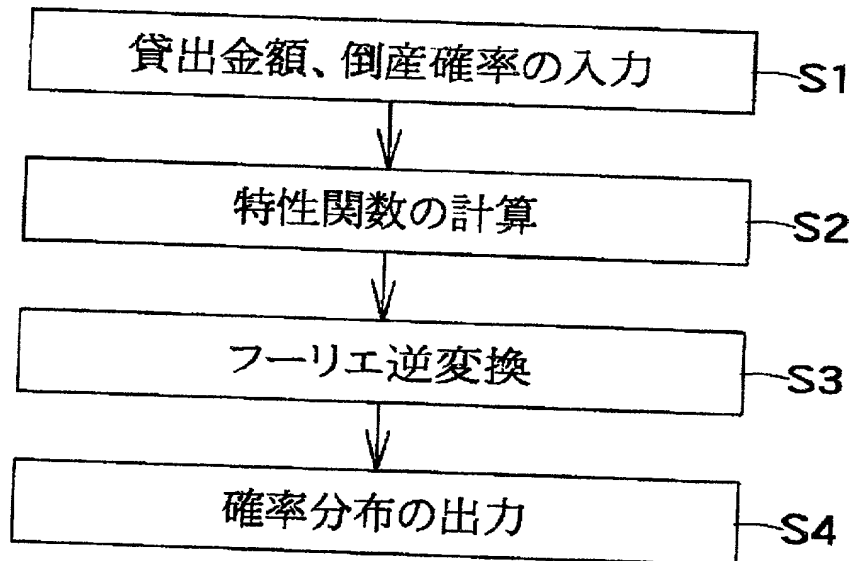 貸出金額、倒産確率の入力
S1
特性関数の計算
S2
フーリエ逆変換
S3
確率分布の出力
S4